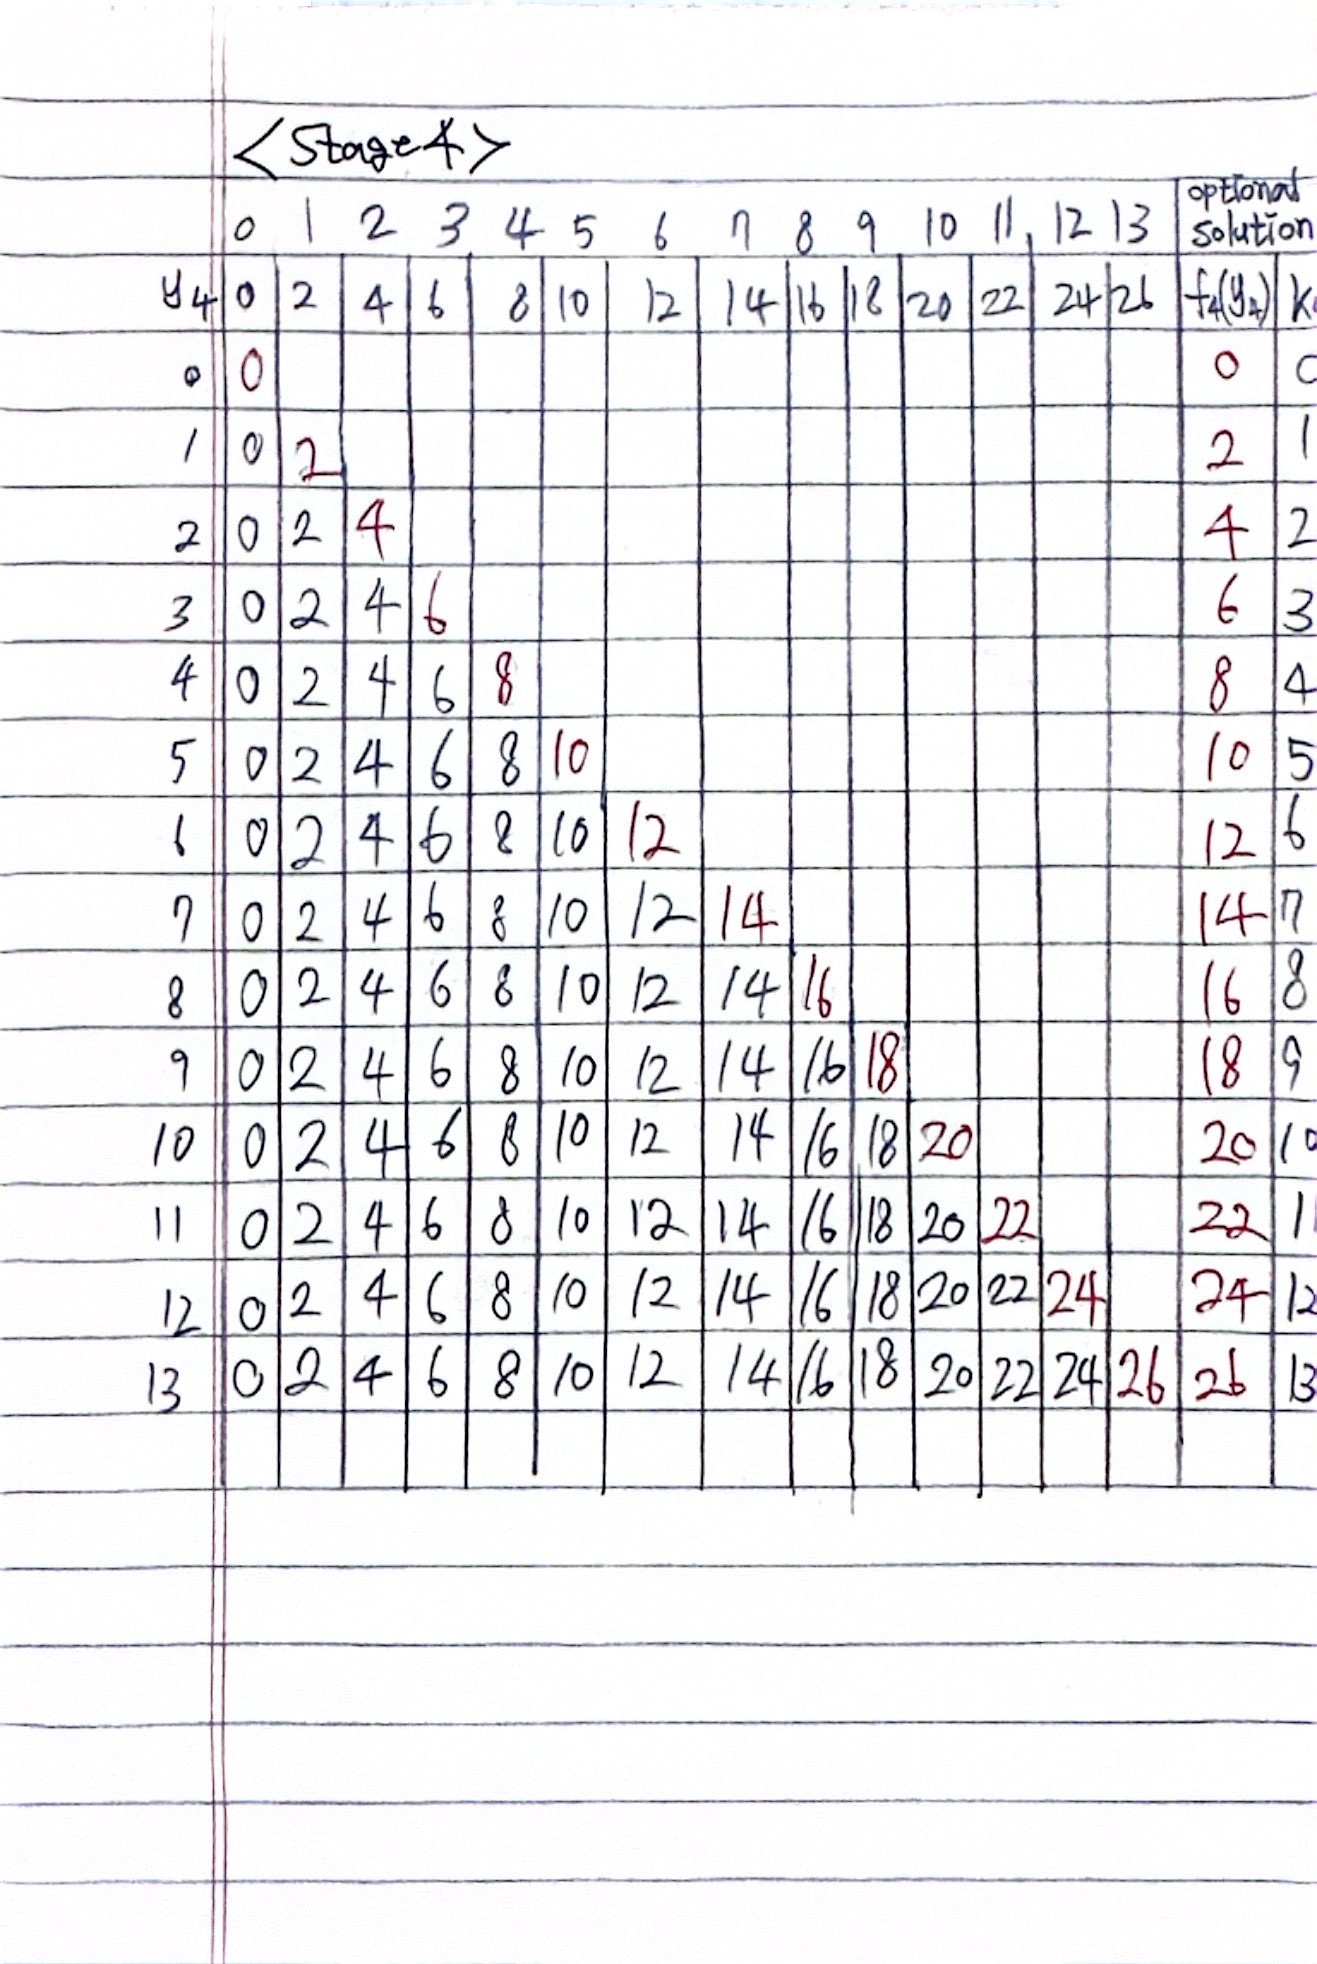 <Stage4>
optional
0 1 2 3 4 5 6 7 8 9 10 11 12 13 solution
y4 0 2 4 6 8 10 12 14 16 18 20 22 24 26 f4(y4) k
0 0 0 0
1 0 2 2 1
2 0 2 4 4 2
3 0 2 4 6 6 3
4 0 2 4 6 8 8 4
5 0 2 4 6 8 10 10 5
6 0 2 4 6 8 10 12 12 6
7 0 2 4 6 8 10 12 14 14 7
8 0 2 4 6 8 10 12 14 16 16 8
9 0 2 4 6 8 10 12 14 16 18 18 9
10 0 2 4 6 8 10 12 14 16 18 20 20 10
11 0 2 4 6 8 10 12 14 16 18 20 22 22 11
12 0 2 4 6 8 10 12 14 16 18 20 22 24 24 12
13 0 2 4 6 8 10 12 14 16 18 20 22 24 26 26 13